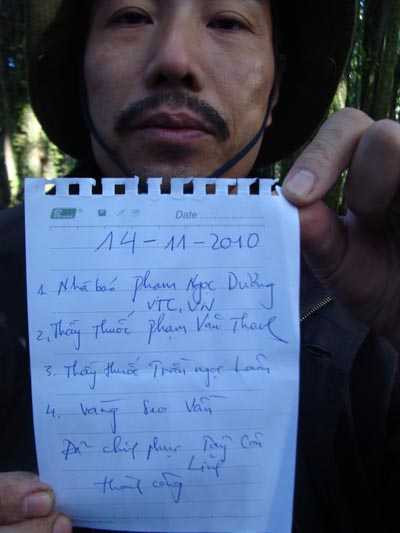 Date
14-11-2010
1. Nhà báo Phạm Ngọc Dương
VTC.VN
2. Thầy thuốc Phạm Văn Thanh
3. Thầy thuốc Trần Ngọc Lâm
4. Vàng Seo Vần
Đã chinh phục Tây Côn
Lĩnh
thành công